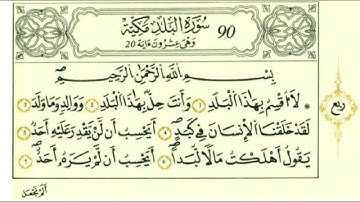 سُورَةُ البَلَدِ مَكِّيَّة
90
وَهِيَ عِشْرُونَ ءَايَة 20
بِسْمِ اللَّهِ الرَّحْمَٰنِ الرَّحِيمِ
لَا أُقْسِمُ بِهَٰذَا الْبَلَدِ 1 وَأَنتَ حِلٌّ بِهَٰذَا الْبَلَدِ 2 وَوَالِدٍ وَمَا وَلَدَ 3
ربع
لَقَدْ خَلَقْنَا الْإِنسَانَ فِي كَبَدٍ 4 أَيَحْسِبُ أَن لَّن يَقْدِرَ عَلَيْهِ أَحَدٌ 5
يَقُولُ أَهْلَكْتُ مَالًا لُّبَدًا 6 أَيَحْسِبُ أَن لَّمْ يَرَهُ أَحَدٌ 7
أَلَمْ نَجْعَل